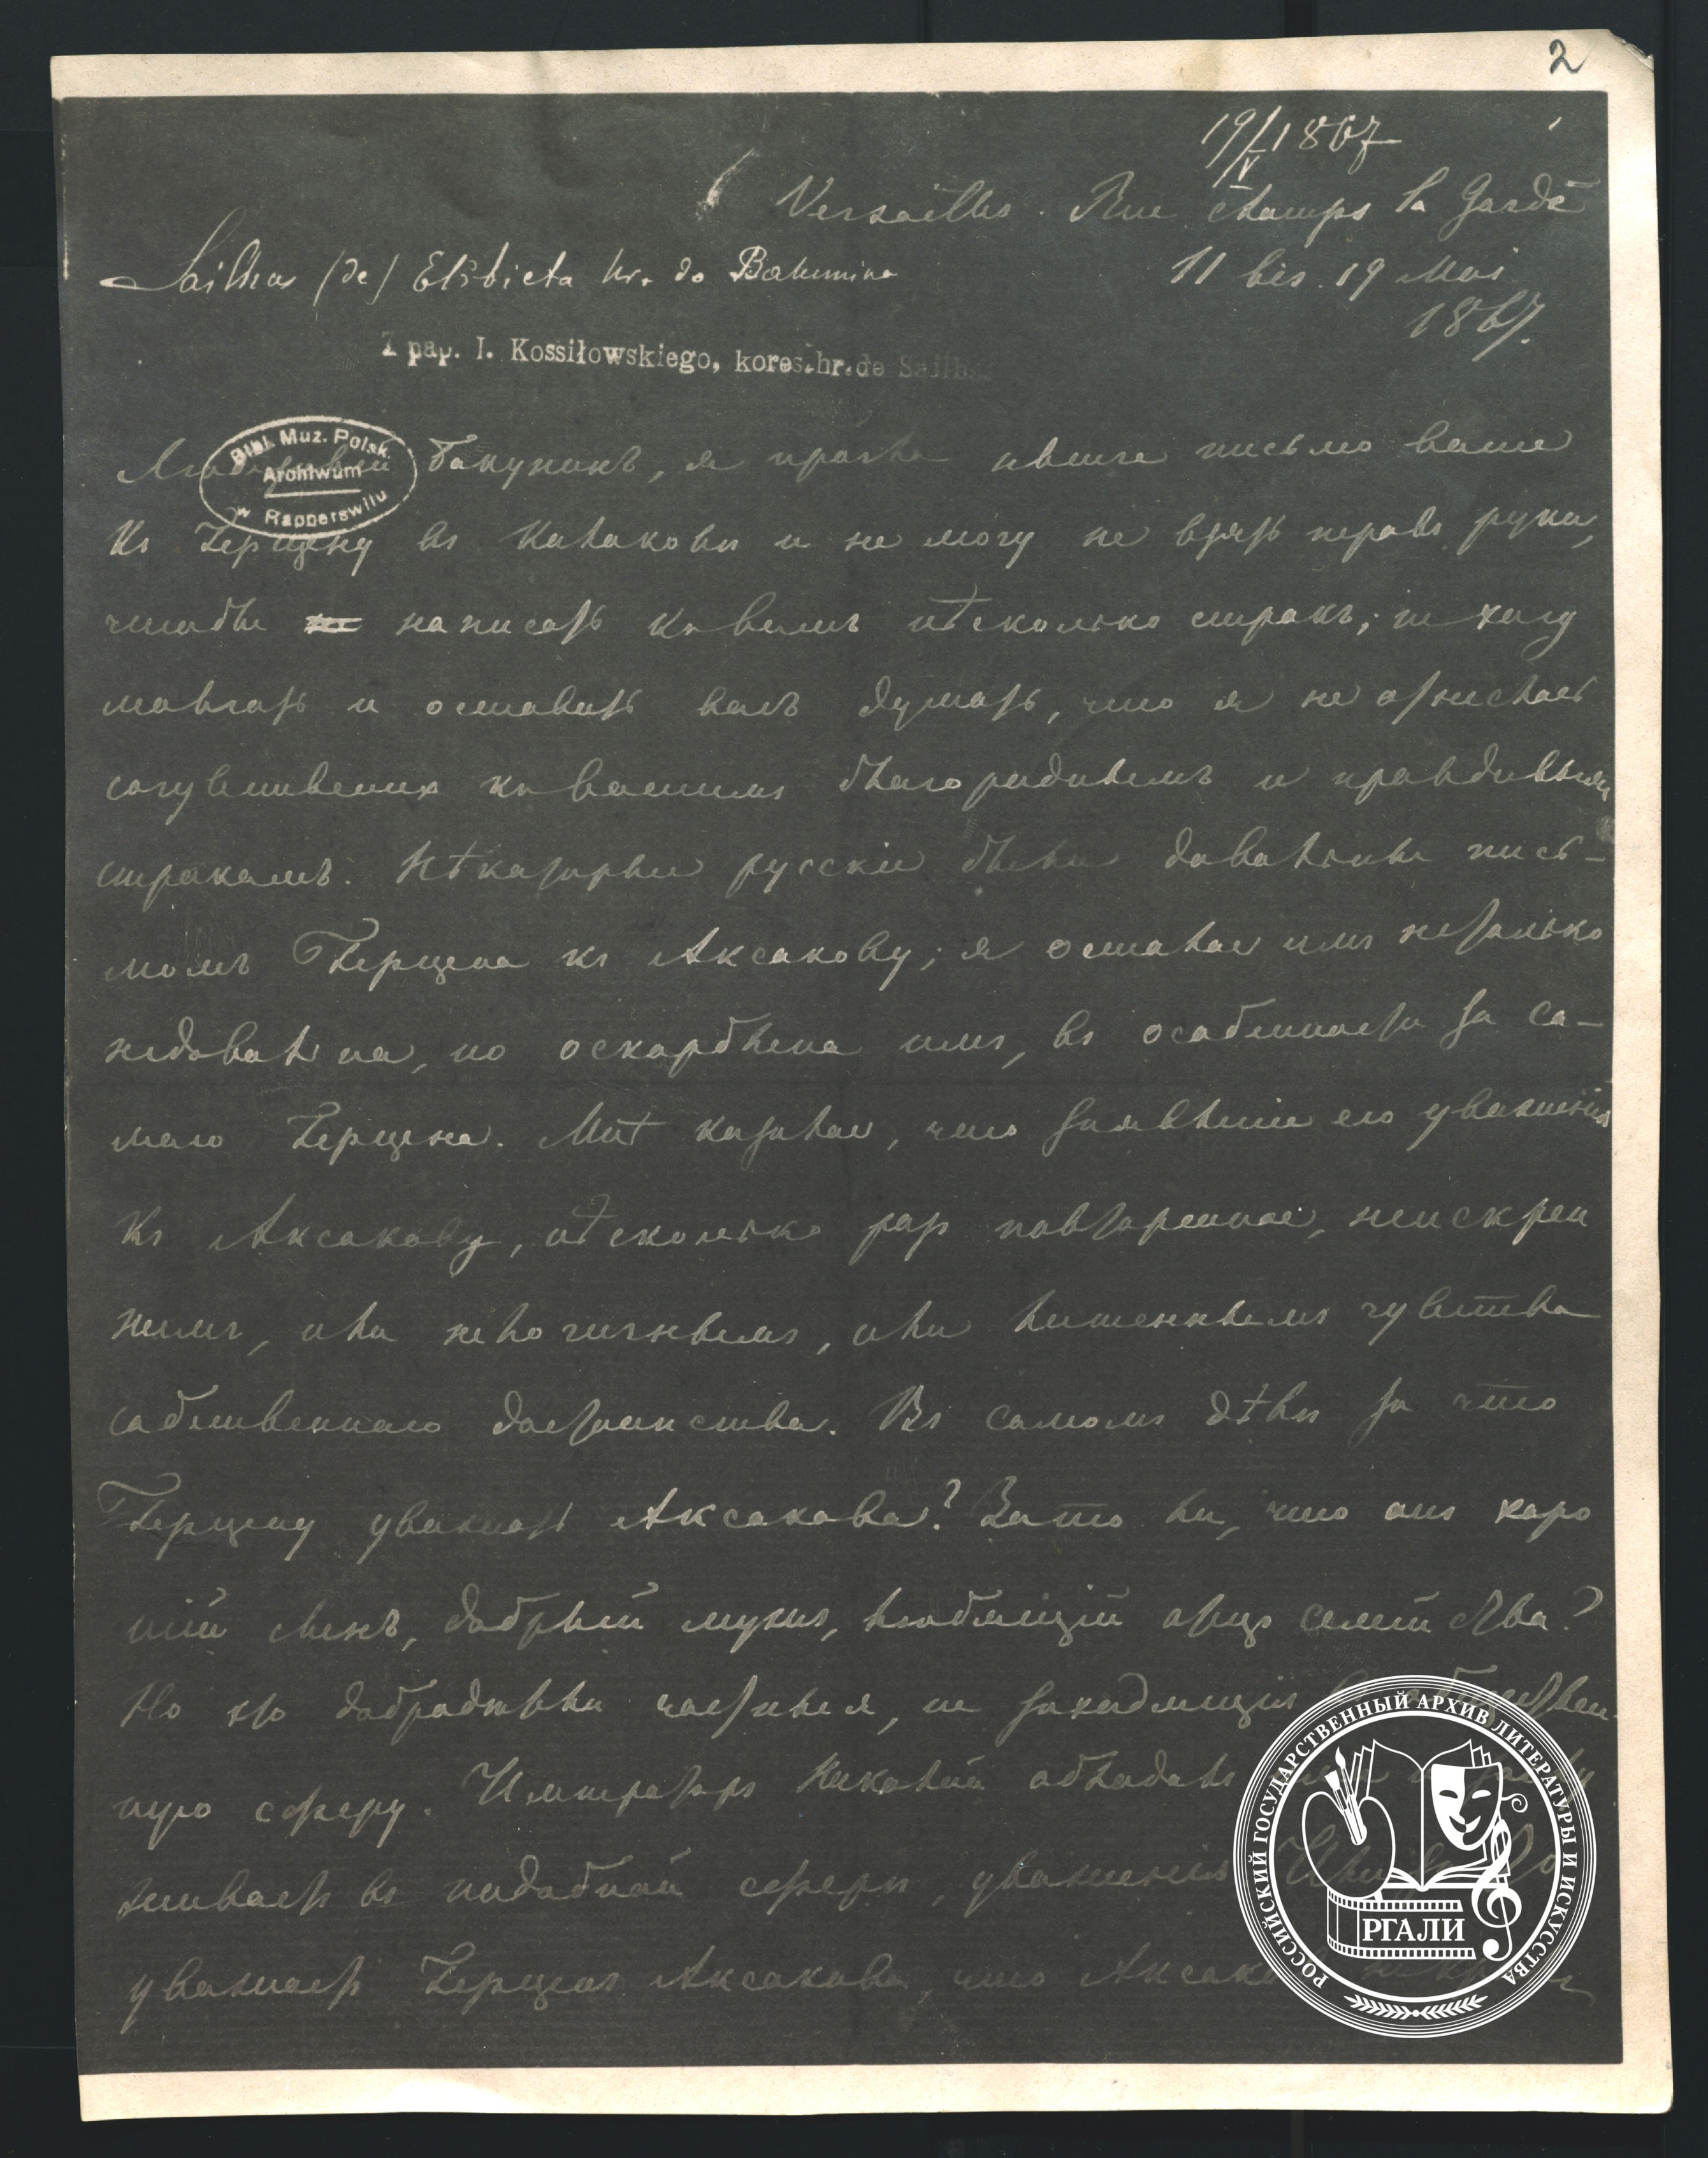 2
19/V 1867
Versailles. Rue champs la Garde
Sailhas (de) Elżbieta hr. do Bakunina
11 bis. 19 Mai
1867.
Z pap. I. Kossiłowskiego, kores. hr. de Sailhas
Bibl. Muz. Polsk.
Archiwum
w Rapperswilu
Бакунинъ, я прочла письмо ваше
къ Герцену въ и не могу не взять перо въ руки,
чтобы написать къ вамъ нѣсколько строкъ; не хочу
молчать и оставить васъ думать, что я не
къ вашимъ благороднымъ и правдивымъ
строкамъ. Нѣкоторые русскіе были довольны пись-
момъ Герцена къ Аксакову; я осталась имъ не только
недовольна, но оскорблена имъ, въ особенности за са-
маго Герцена. Мнѣ казалось, что его уваженія
къ Аксакову, нѣсколько разъ повторенное, неискрен
нимъ, или нелогичнымъ, или лишеннымъ чувства
собственнаго достоинства. Въ самомъ дѣлѣ за что
Герцену уважать Аксакова? Зато ли, что онъ хоро
шій членъ, добрый мужъ, любящій отецъ семейства?
Но это добродѣтели частныя, не входящія
ную сферу. Императоръ Николай обладалъ
въ подобной сферѣ, уваженія
уважаетъ Герценъ Аксакова, что
РОССИЙСКИЙ ГОСУДАРСТВЕННЫЙ АРХИВ ЛИТЕРАТУРЫ И ИСКУССТВА
РГАЛИ